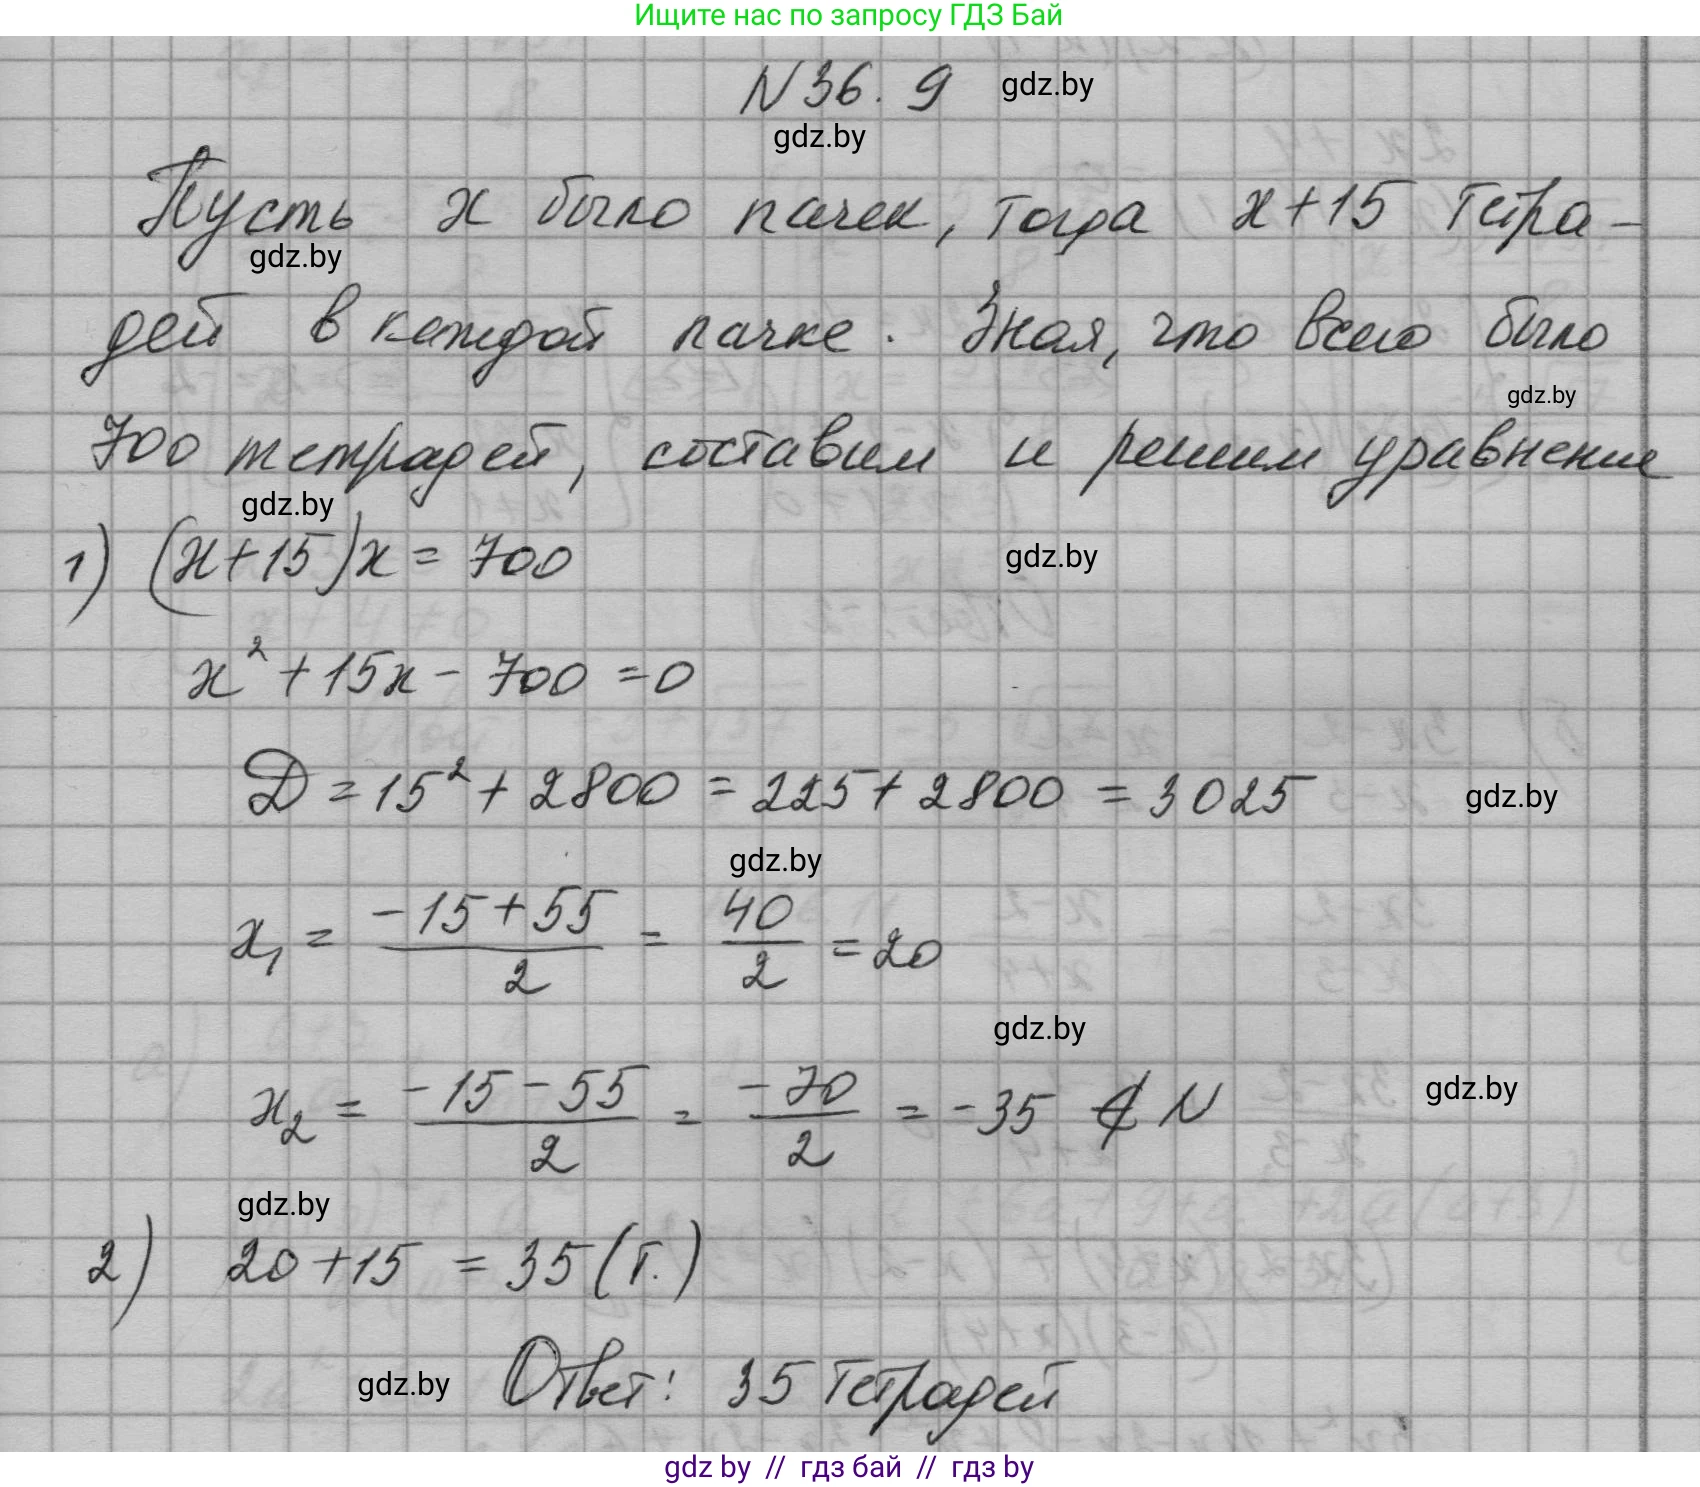 Ищите нас по запросу ГДЗ Бай
N 36. 9 gdz.by
gdz.by
Пусть x было пачек, тогда x+15 тетра-
gdz.by
дей в каждой пачке. Зная, что всего было
gdz.by
700 тетрадей, составим и решим уравнение
gdz.by
1) (x+15)x = 700 gdz.by
x² + 15x - 700 = 0
Д = 15² + 2800 = 225 + 2800 = 3025 gdz.by
gdz.by
x₁ = (-15+55)/2 = 40/2 = 20
gdz.by
x₂ = (-15-55)/2 = -70/2 = -35 ∉ N gdz.by
gdz.by
2) 20+15 = 35 (т.)
gdz.by Ответ: 35 тетрадей
gdz by // гдз бай // гдз by